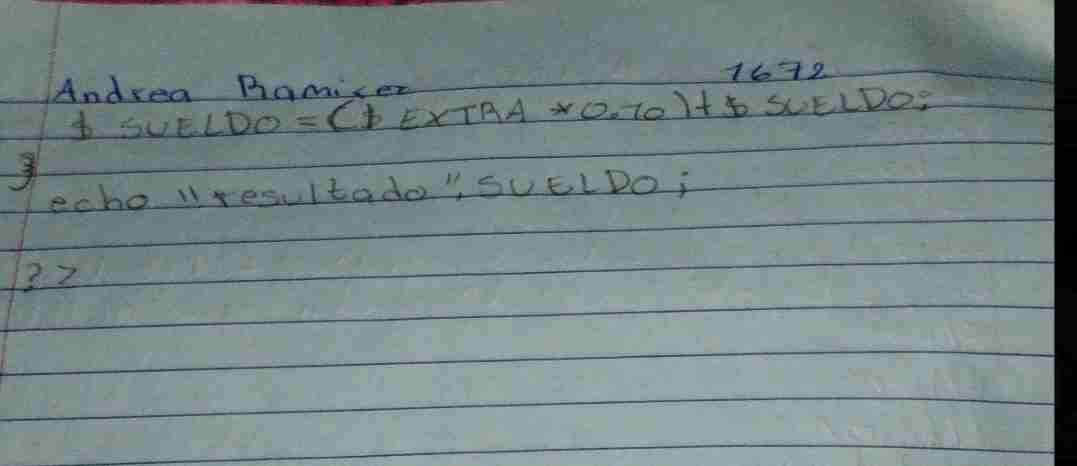 Andrea Ramirez 1672
$ SUELDO = ($ EXTRA * 0.70) + $ SUELDO;
}
echo "resultado", SUELDO;
?>